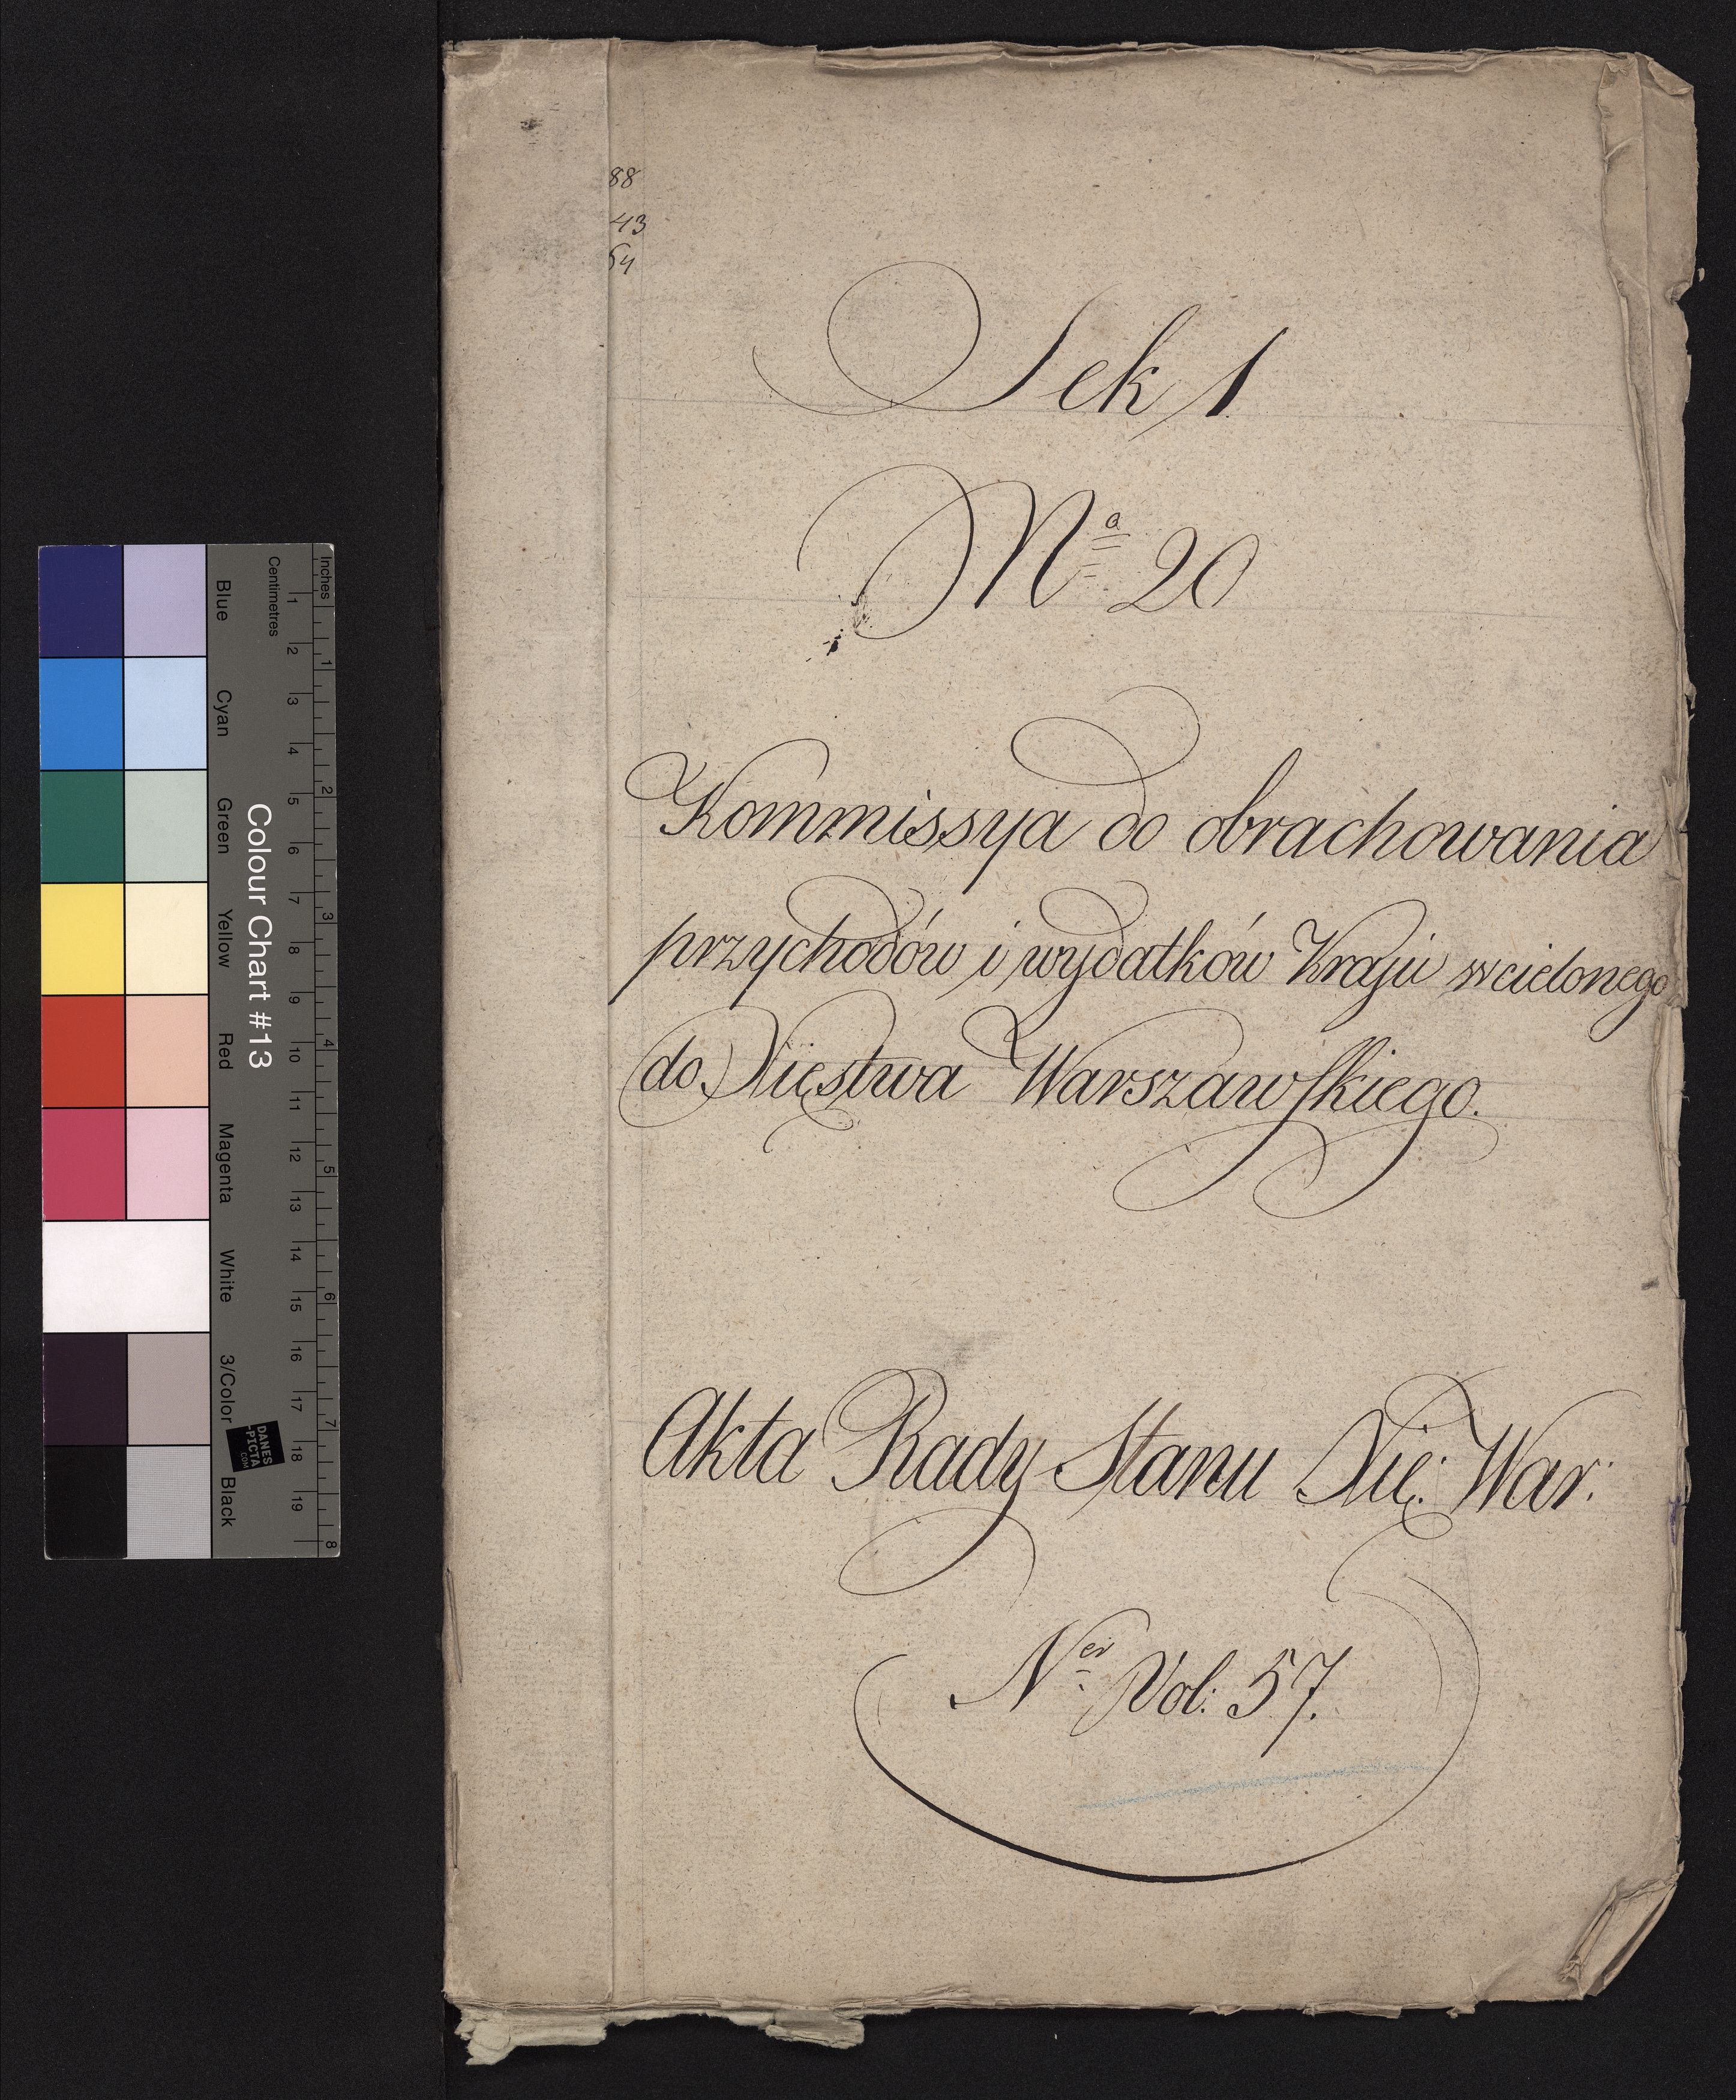 88
43
54
Sek 1
Nº 20
Kommissya do obrachowania
przychodów i wydatków Kraju wcielonego
do Xięstwa Warszawskiego.
Akta Rady Stanu Xię: War:
Ner Vol: 57.
Inches
Centimetres
1 2 3 4 5 6 7 8
1 2 3 4 5 6 7 8 9 10 11 12 13 14 15 16 17 18 19
Blue Cyan Green Yellow Red Magenta White 3/Color Black
Colour Chart #13
DANES
-PICTA
.COM